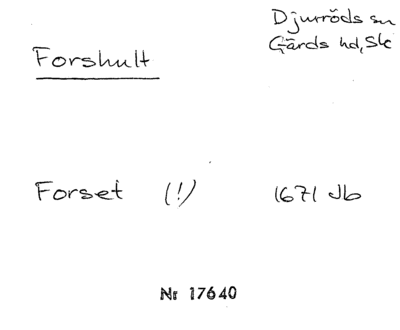 Djurröds sn
Gärds hd, Sk
Forshult
Forset (!) 1671 Jb
Nr 17640